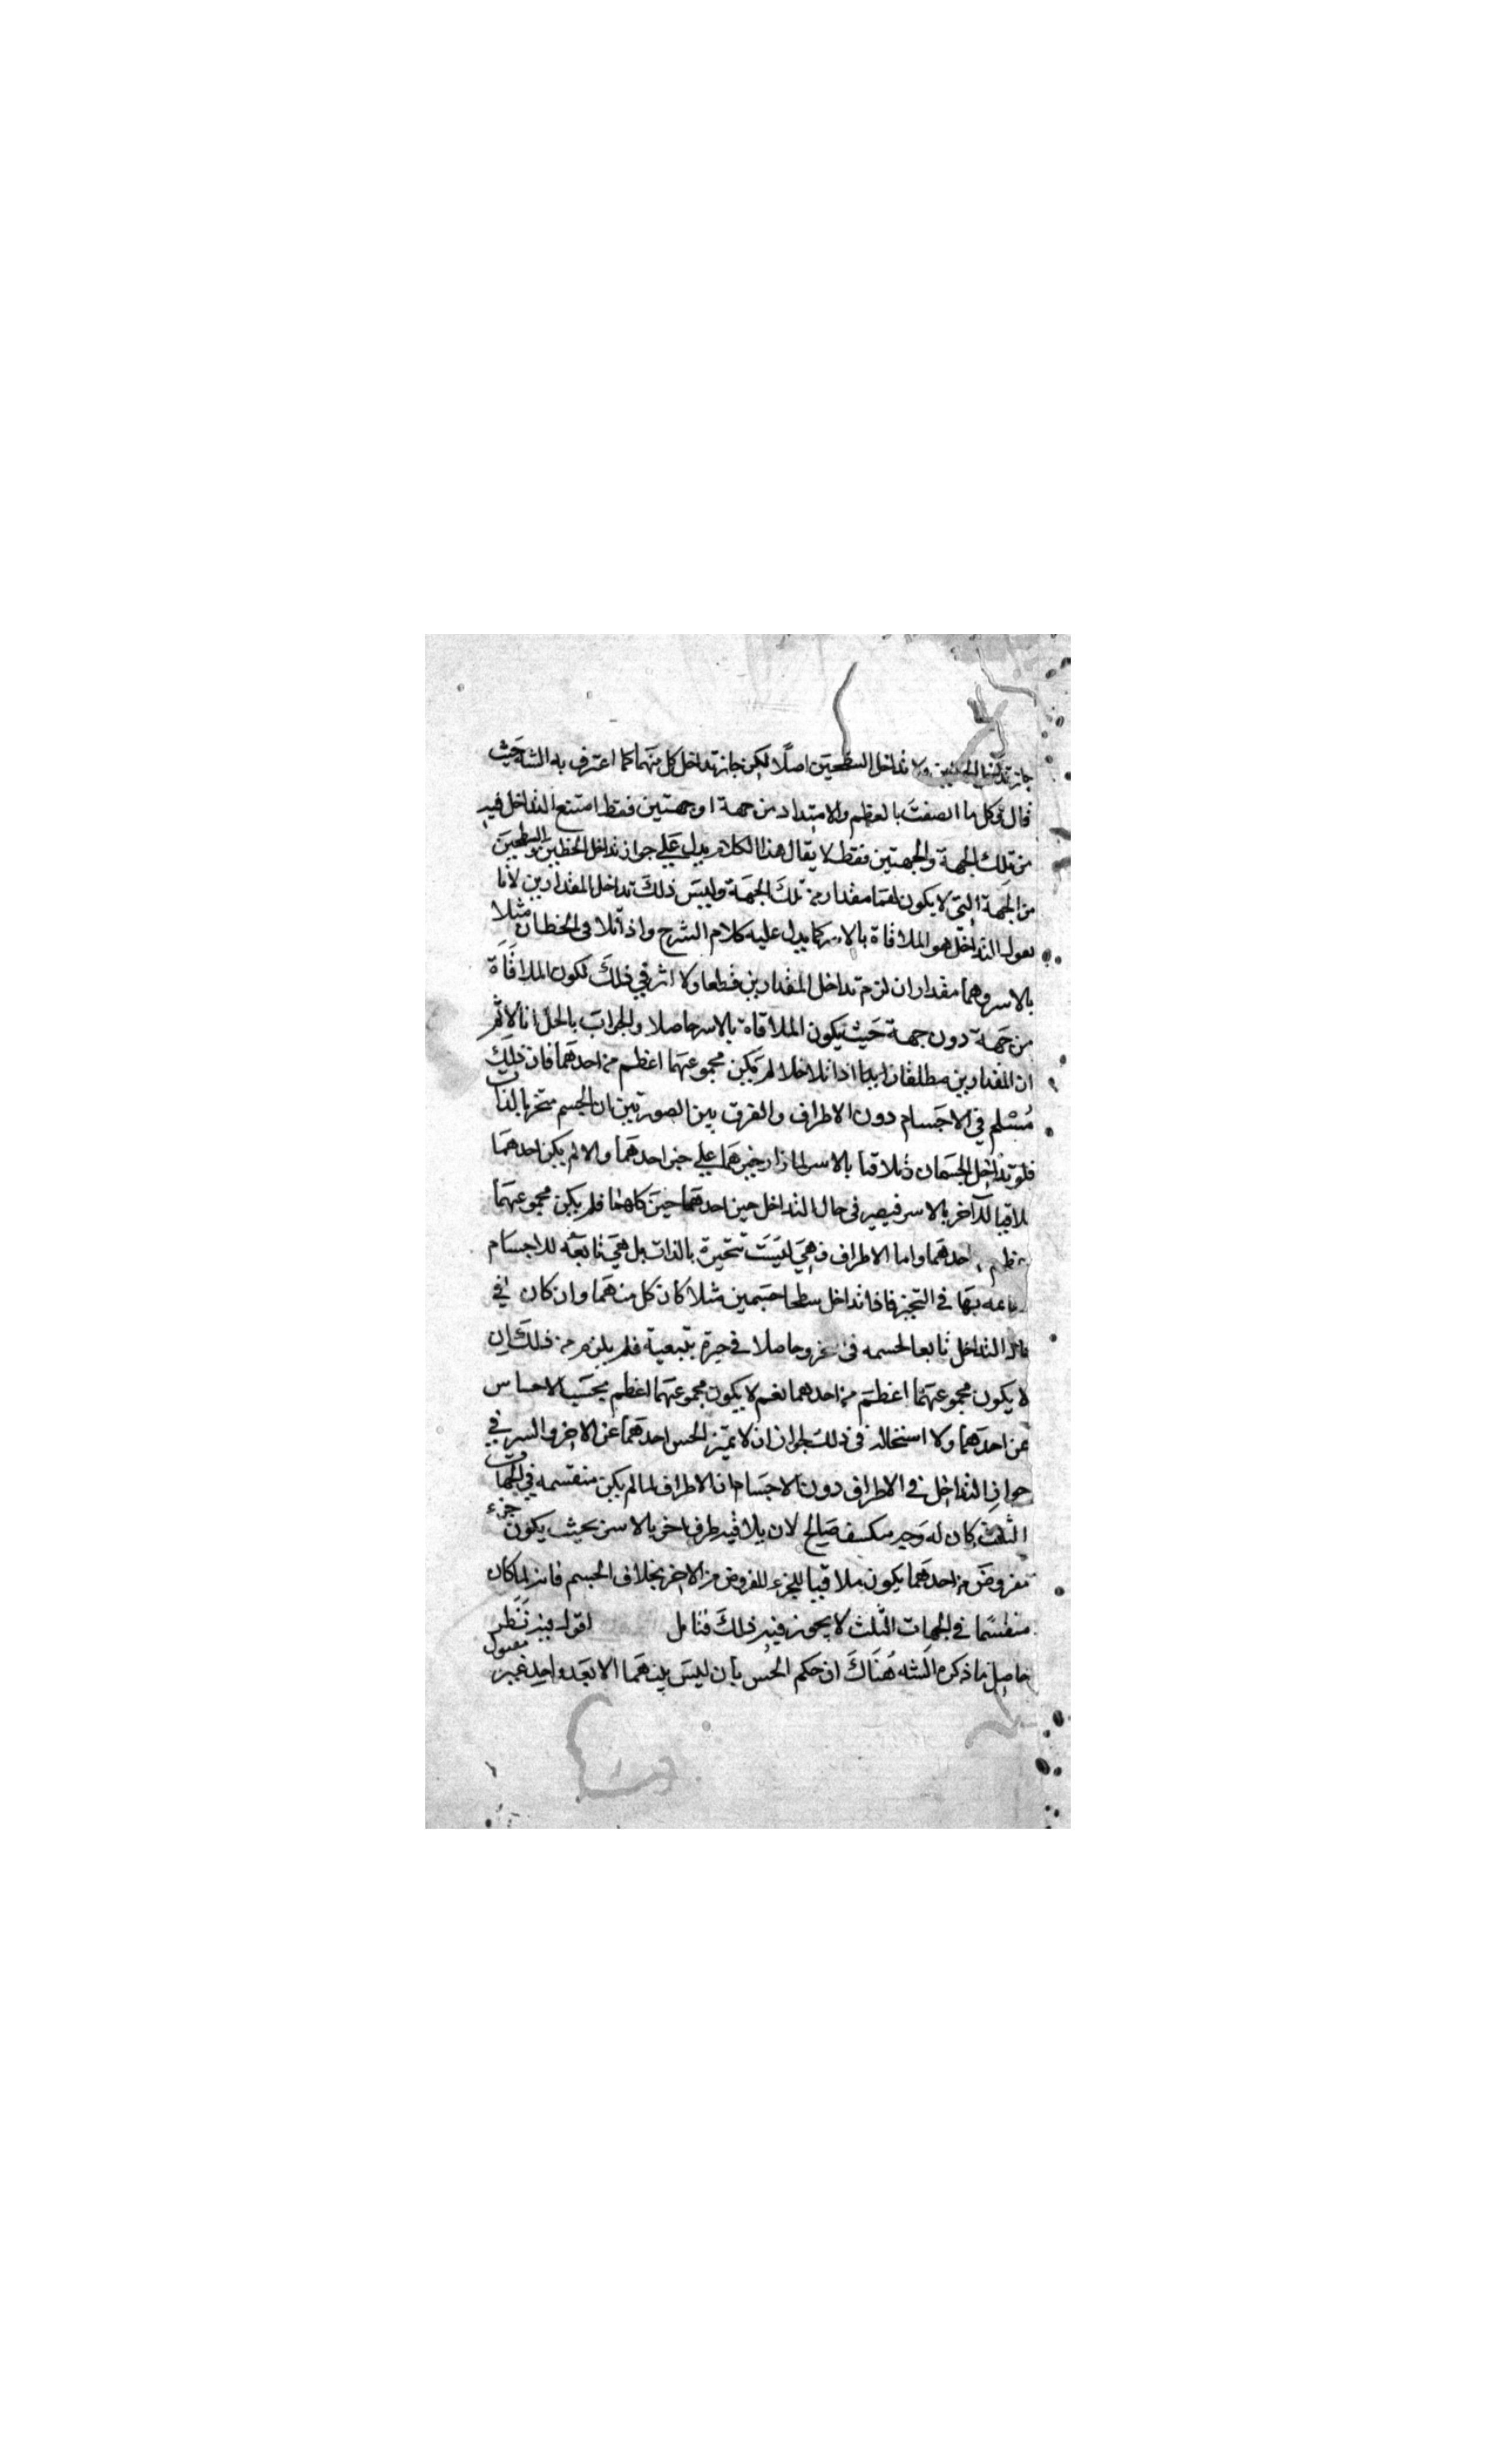 جاز تداخل الخطين ولا تداخل السطحين اصلا لكن جاز تداخل كل منهما كما اعترف به الشه حيث
قال فى كل ما اتصفت بالعظم والامتداد من جهة او جهتين فقط امتنع التداخل فيه
من تلك الجهة والجهتين فقط لا يقال هذا الكلام يدل على جواز تداخل الخطين والسطحين
من الجهة التى لا يكون لهما مقدار من تلك الجهة وليس ذلك تداخل المقدارين لانا
نقول التداخل هو الملاقاة بالاسر كما يدل عليه كلام الشرح واذ تلاقى الخطان مثلا
بالاسر وهما مقداران لزم تداخل المقدارين قطعا ولا اثر في ذلك لكون الملاقاة
من جهة دون جهة حيث يكون الملاقاة بالاسر حاصلا والجواب بالحل انا لا نم
ان المقدارين مطلقا اذا تداخلا لم يكن مجموعهما اعظم من احدهما فان ذلك
مسلم في الاجسام دون الاطراف والفرق بين الصورتين ان الجسم متحيز بالذات
فلو تداخل الجسمان وتلاقيا بالاسر لما زاد حيزهما على حيز احدهما والا لم يكن احدهما
ملاقيا للآخر بالاسر فيصير فى حال التداخل حيز احدهما حيز كلاهما فلم يكن مجموعهما
اعظم من احدهما واما الاطراف فهى ليست متحيزة بالذات بل هى تابعة للاجسام
بها في التحيز فاذا تداخل سطحا جسمين مثلا كان كل منهما وان كان في
حال التداخل تابعا لجسمه فى وحاصلا في حيزه بتبعية فلم يلزم من ذلك ان
لا يكون مجموعهما اعظم من احدهما نعم لا يكون مجموعهما اعظم بحسب الاحساس
من احدهما ولا استحاله فى ذلك لجواز ان لا يميز الحس احدهما عن الاخر والسر في
جواز التداخل في الاطراف دون الاجسام ان الاطراف لما لم يكن منقسمه في الجهات
الثلث كان له وجه صالح لان يلاقيه طرف اخر بالاسر بحيث يكون جزء
مفروض من احدهما يكون ملاقيا للجزء المفروض من الاخر بخلاف الجسم فانه لما كان
منقسما في الجهات الثلث لا يجوز فيه ذلك فتامل اقول فيه نظر
حاصل ما ذكره الشه هناك ان حكم الحس بان ليس بينهما الا بعد واحد غير مقبول